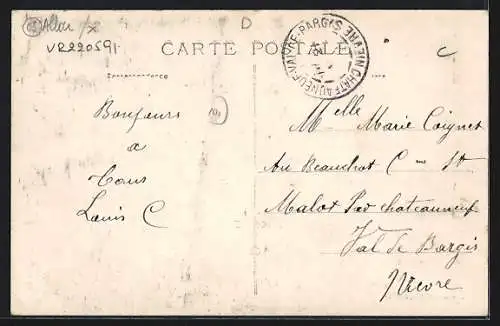 Allou
VR220591
D
CARTE POSTALE
CHATEAUNEUF-VAL-DE-BARGIS NIEVRE
C
Bonjours
a
tous
Louis C
Melle Marie Coignet
Au Beauchot Cne St
Malot Par chateauneuf
Val de Bargis
Nievre